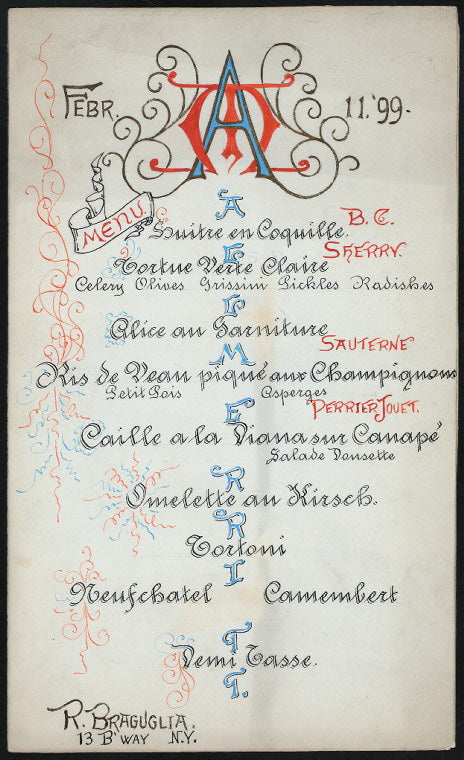 FEBR. 11.'99-
MENU
B. C.
Huitre en Coquille.
SHERRY.
Tortue Verte Claire
Celery Olives Grissini Pickles Radishes
Alice au Garniture
SAUTERNE
Ris de Veau piqué aux Champignons
Petit Pois Asperges
PERRIER JOUET.
Caille a la Diana sur Canapé
Salade Dousette
Omelette au Kirsch.
Tortoni
Neufchatel Camembert
Demi Tasse.
MERRITT.
R. BRAGUGLIA.
13 B'WAY N.Y.